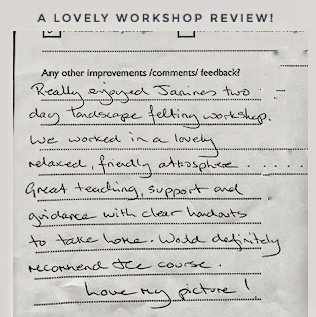 A LOVELY WORKSHOP REVIEW!
Any other improvements /comments/ feedback?
Really enjoyed Janines two
day landscape felting workshop.
We worked in a lovely
relaxed, friendly atmosphere
Great teaching, support and
guidance with clear handouts
to take home. Would definitely
recommend the course.
Love my picture!